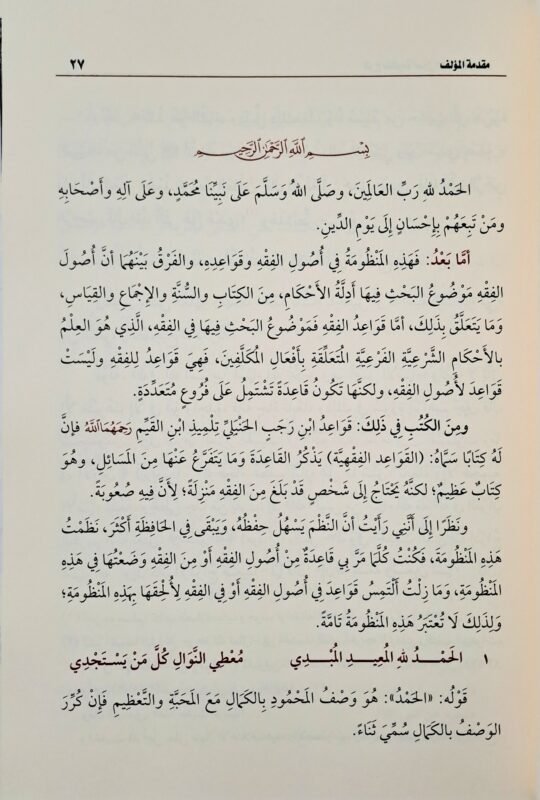 مقدمة المؤلف ٢٧
بِسْمِ اللَّهِ الرَّحْمَٰنِ الرَّحِيمِ
الحَمْدُ لله رَبِّ العَالَمِينَ، وَصَلَّى اللهُ وَسَلَّمَ عَلَى نَبِيِّنَا مُحَمَّدٍ، وَعَلَى آلِهِ وَأَصْحَابِهِ
وَمَنْ تَبِعَهُمْ بِإِحْسَانٍ إِلَى يَوْمِ الدِّينِ.
أمَّا بَعْدُ: فَهَذِهِ المَنْظُومَةُ فِي أُصُولِ الفِقْهِ وقَوَاعِدِهِ، والفَرْقُ بَيْنَهُمَا أنَّ أُصُولَ
الفِقْهِ مَوْضُوعُ البَحْثِ فِيهَا أَدِلَّةُ الأَحْكَامِ، مِنَ الكِتَابِ والسُّنَّةِ والإِجْمَاعِ والقِيَاسِ،
وَمَا يَتَعَلَّقُ بِذَلِكَ، أمَّا قَوَاعِدُ الفِقْهِ فَمَوْضُوعُ البَحْثِ فِيهَا فِي الفِقْهِ، الَّذِي هُوَ العِلْمُ
بالأَحْكَامِ الشَّرْعِيَّةِ الفَرْعِيَّةِ المُتَعَلِّقَةِ بِأَفْعَالِ المُكَلَّفِينَ، فَهِيَ قَوَاعِدُ لِلفِقْهِ وَلَيْسَتْ
قَوَاعِدَ لأُصُولِ الفِقْهِ، ولكنَّهَا تَكُونُ قَاعِدَةً تَشْتَمِلُ عَلَى فُرُوعٍ مُتَعَدِّدَةٍ.
ومِنَ الكُتُبِ فِي ذَلِكَ: قَوَاعِدُ ابْنِ رَجَبٍ الحَنْبَلِيِّ تِلْمِيذِ ابْنِ القَيِّمِ رَحِمَهُمَا اللَّهُ فإنَّ
لَهُ كِتَابًا سَمَّاهُ: (القَوَاعِدَ الفِقْهِيَّةَ) يَذْكُرُ القَاعِدَةَ وَمَا يَتَفَرَّعُ عَنْهَا مِنَ المَسَائِلِ، وهُوَ
كِتَابٌ عَظِيمٌ؛ لكنَّهُ يَحْتَاجُ إِلَى شَخْصٍ قَدْ بَلَغَ مِنَ الفِقْهِ مَنْزِلَةً؛ لِأَنَّ فِيهِ صُعُوبَةً.
ونَظَرًا إِلَى أنَّنِي رَأَيْتُ أنَّ النَّظْمَ يَسْهُلُ حِفْظُهُ، وَيَبْقَى فِي الحَافِظَةِ أَكْثَرَ، نَظَمْتُ
هَذِهِ المَنْظُومَةَ، فَكُنْتُ كُلَّمَا مَرَّ بِي قَاعِدَةٌ مِنْ أُصُولِ الفِقْهِ أَوْ مِنَ الفِقْهِ وَضَعْتُهَا فِي هَذِهِ
المَنْظُومَةِ، وَمَا زِلْتُ أَلْتَمِسُ قَوَاعِدَ فِي أُصُولِ الفِقْهِ أَوْ فِي الفِقْهِ لِأُلْحِقَهَا بِهَذِهِ المَنْظُومَةِ؛
ولِذَلِكَ لَا تُعْتَبَرُ هَذِهِ المَنْظُومَةُ تَامَّةً.
١ الحَمْدُ للهِ المُعِيدِ المُبْدِي مُعْطِي النَّوَالِ كُلَّ مَنْ يَسْتَجْدِي
قَوْلُه: «الحَمْدُ»: هُوَ وَصْفُ المَحْمُودِ بِالكَمَالِ مَعَ المَحَبَّةِ والتَّعْظِيمِ فَإِنْ كُرِّرَ
الوَصْفُ بِالكَمَالِ سُمِّيَ ثَنَاءً.